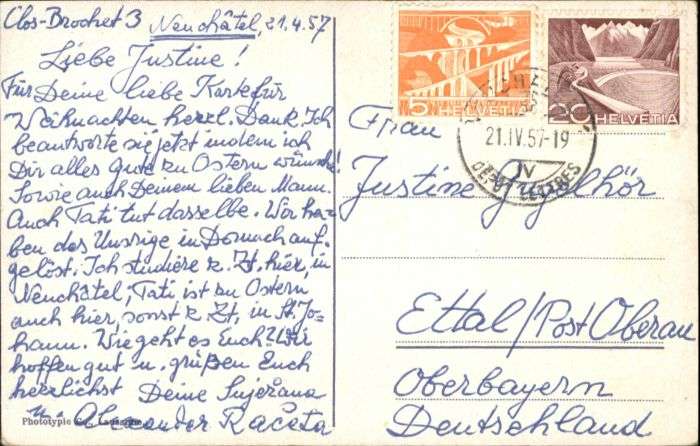 Clos-Brochet 3 Neuchâtel, 21.4.57
Liebe Justine!
Für Deine liebe Karte für
Weihnachten herzl. Dank. Ich
beantworte sie jetzt indem ich
Dir alles gute zu Ostern wünsche!
Sowie auch Deinem lieben Mann.
Auch Tati tut dasselbe. Wir ha-
ben das Unsrige in Dornach auf-
gelöst. Ich studiere z. Zt. hier, in
Neuchâtel, Tati ist zu Ostern
auch hier, sonst z. Zt, in St. Jo-
hann. Wie geht es Euch? Wir
hoffen gut u. grüßen Euch
herzlichst Deine
u. Alexander
Phototypie Co., Lausanne
5
HELVETIA
20 HELVETIA
21.IV.57-19
IV
LETTRES
Frau
Justine
Ettal/Post Oberau
Oberbayern
Deutschland